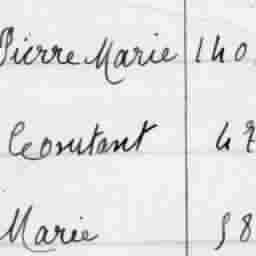 Pierre Marie 140
Cooutant 47
Marie 58